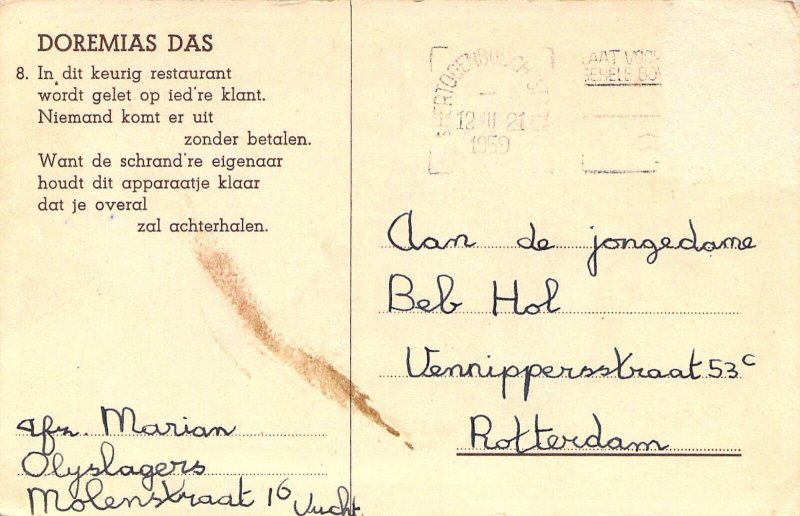 DOREMIAS DAS
8. In dit keurig restaurant
wordt gelet op ied're klant.
Niemand komt er uit
zonder betalen.
Want de schrand're eigenaar
houdt dit apparaatje klaar
dat je overal
zal achterhalen.
'S HERTOGENBOSCH
12 21
1959
LAAT VOOR
GEHELE BO
Aan de jongedame
Beb Hol
Vennippersstraat 53c
Rotterdam
afz. Marian
Olyslagers
Molenstraat 16 Vucht